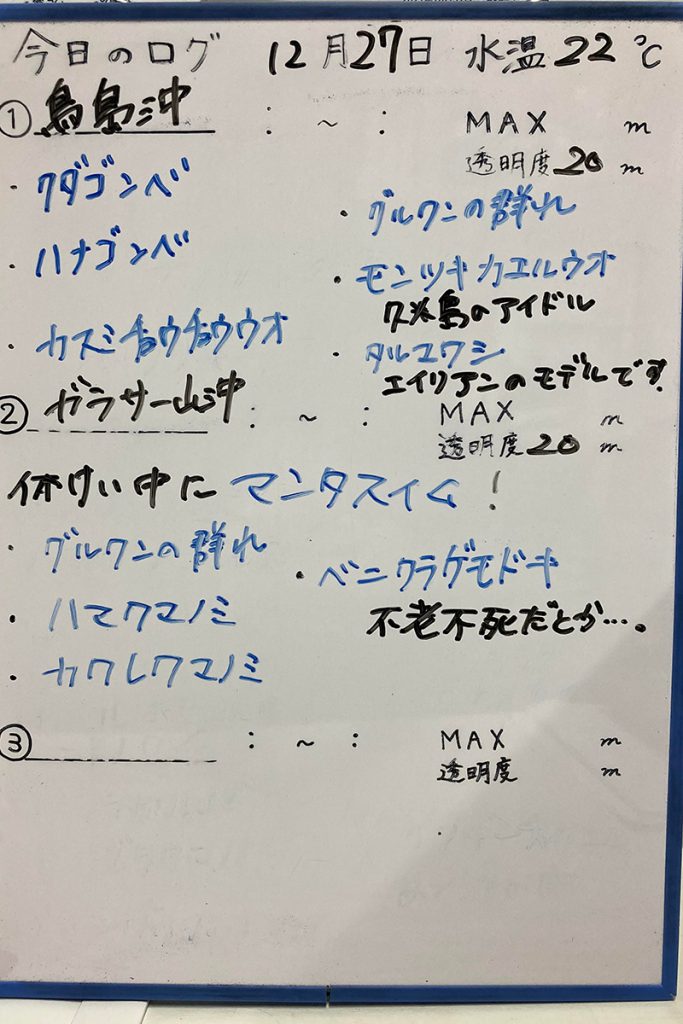 今日のログ 12月27日 水温22℃
① 鳥島沖 : ~ : MAX m
透明度20m
・クダゴンベ
・ハナゴンベ
・カスミチョウチョウウオ
・グルクンの群れ
・モンツキカエルウオ
久米島のアイドル
・タルマワシ
エイリアンのモデルです。
② ガラサー山沖 : ~ : MAX m
透明度20m
休けい中にマンタスイム!
・グルクンの群れ
・ハマクマノミ
・カクレクマノミ
・ベニクラゲモドキ
不老不死だとか…。
③ : ~ : MAX m
透明度 m